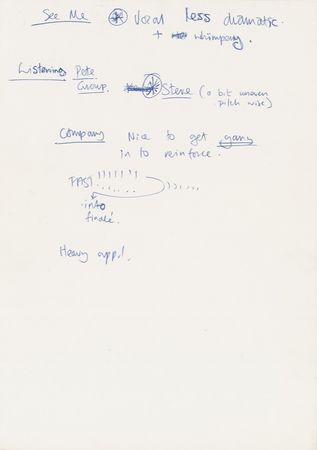 See Me Vocal less dramatic.
+ whimpary.
Listening Pete
Group. Steve (a bit uneven
pitch wise)
Company Nice to get gang
in to reinforce.
FAST
into
finalé.
Heavy app!.